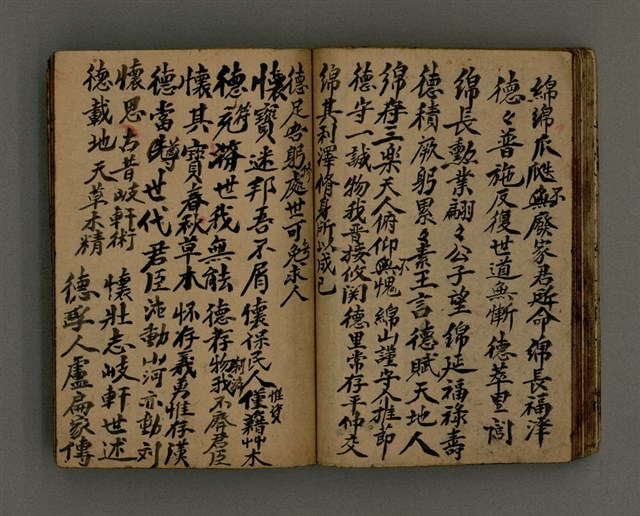 綿綿爪瓞無廢家君所命 綿長福澤
德々普施反復世道無慚 德萃里閭
綿長勲業翩々公子望 綿延福祿壽
德積厥躬累々素王言 德賦天地人
綿存三樂天人俯仰無愧 綿山謹守介推節
德守一誠物我晋接攸関 德里常存平仲交
綿其利澤脩身所以成已
德足吾躬處世可免求人
懷寶迷邦吾不屑 懷保民人惟資
德符堯舜世我無能 德存物我不齊君臣
懷其寶春秋草木 怀存義勇惟存漢
德當時世代君臣 德動山河亦動刘
懷思古昔岐軒術 懷壯志岐軒世述
德載地天草木精 德孚人盧扁家傳